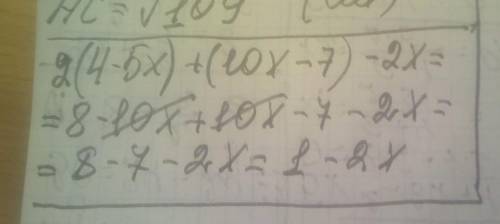 AC = √109
2(4-5x)+(10x-7)-2x=
=8-10x+10x-7-2x=
=8-7-2x=1-2x